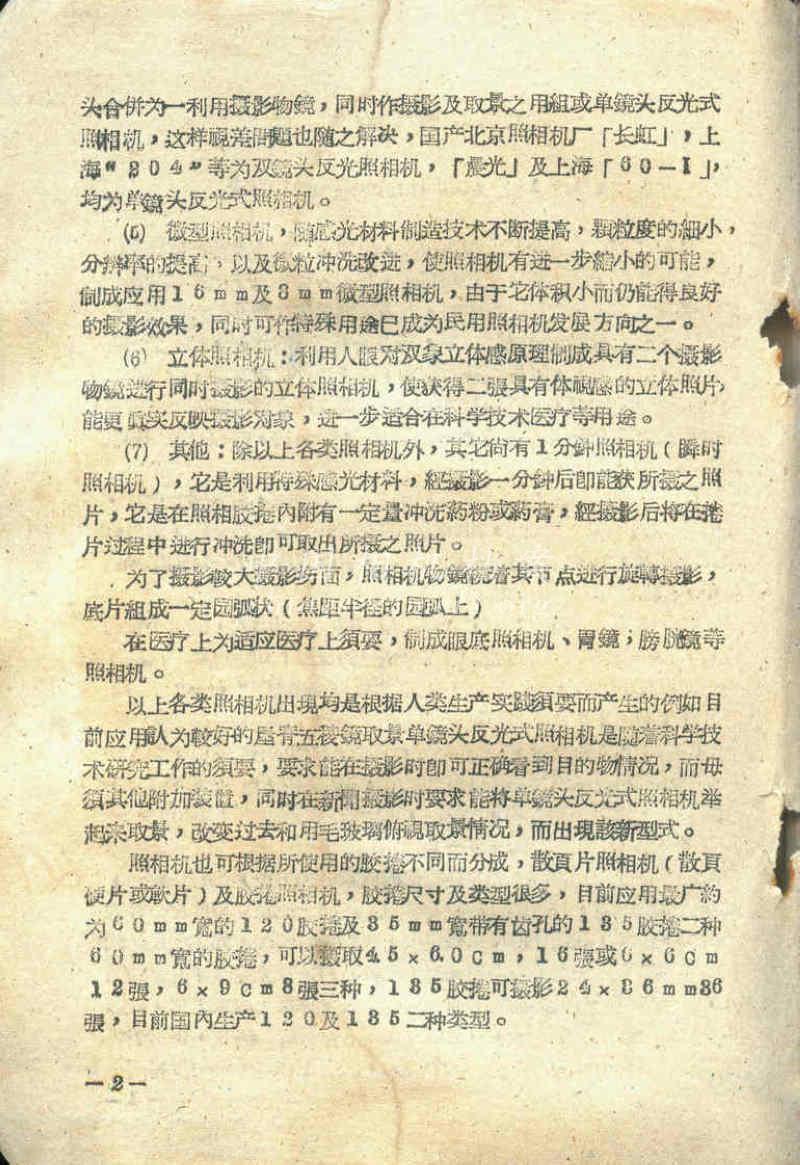 头合併为一利用摄影物鏡，同时作摄影及取景之用組或单鏡头反光式
照相机，这样視差問題也随之解决，国产北京照相机厂「长虹」，上
海“204”等为双鏡头反光照相机，「晨光」及上海「60—I」，
均为单鏡头反光式照相机。
(5) 微型照相机，随感光材料制造技术不断提高，顆粒度的細小，
分辨率的提高，以及微粒冲洗改进，使照相机有进一步縮小的可能，
制成应用16mm及8mm微型照相机，由于它体积小而仍能得良好
的摄影效果，同时可作特殊用途已成为民用照相机发展方向之一。
(6) 立体照相机：利用人眼对双象立体感原理制成具有二个摄影
物鏡进行同时摄影的立体照相机，使获得二張具有体視感的立体照片，
能更眞实反映摄影对象，进一步适合在科学技术医疗等用途。
(7) 其他：除以上各类照相机外，其它尙有1分鈡照相机（瞬时
照相机），它是利用特殊感光材料，經摄影一分鈡后卽能获所摄之照
片，它是在照相胶捲內附有一定量冲洗葯粉或葯膏，經摄影后将在捲
片过程中进行冲洗卽可取出所摄之照片。
为了摄影較大摄影 面，照相机物鏡繞着其节点进行旋轉摄影，
底片組成一定园弧状（焦距半径的园弧上）
在医疗上为适应医疗上須要，制成眼底照相机、胃鏡；膀胱鏡等
照相机。
以上各类照相机出現均是根据人类生产实踐須要而产生的例如目
前应用認为較好的屋脊五棱鏡取景单鏡头反光式照相机是随着科学技
术研究工作的須要，要求能在摄影时卽可正确看到目的物情况，而毋
須其他附加裝置，同时在新聞摄影时要求能将单鏡头反光式照相机举
起来取景，改变过去和用毛玻璃俯視取景情况，而出現該新型式。
照相机也可根据所使用的胶捲不同而分成，散頁片照相机（散頁
硬片或軟片）及胶捲照相机，胶捲尺寸及类型很多，目前应用最广約
为60mm寬的120胶捲及35mm寬带有齿孔的135胶捲二种
60mm寬的胶捲，可以摄取4.5×6.0cm，16張或6×6cm
12張，6×9cm8張三种，135胶捲可摄影24×36mm36
張，目前国內生产120及135二种类型。
—2—